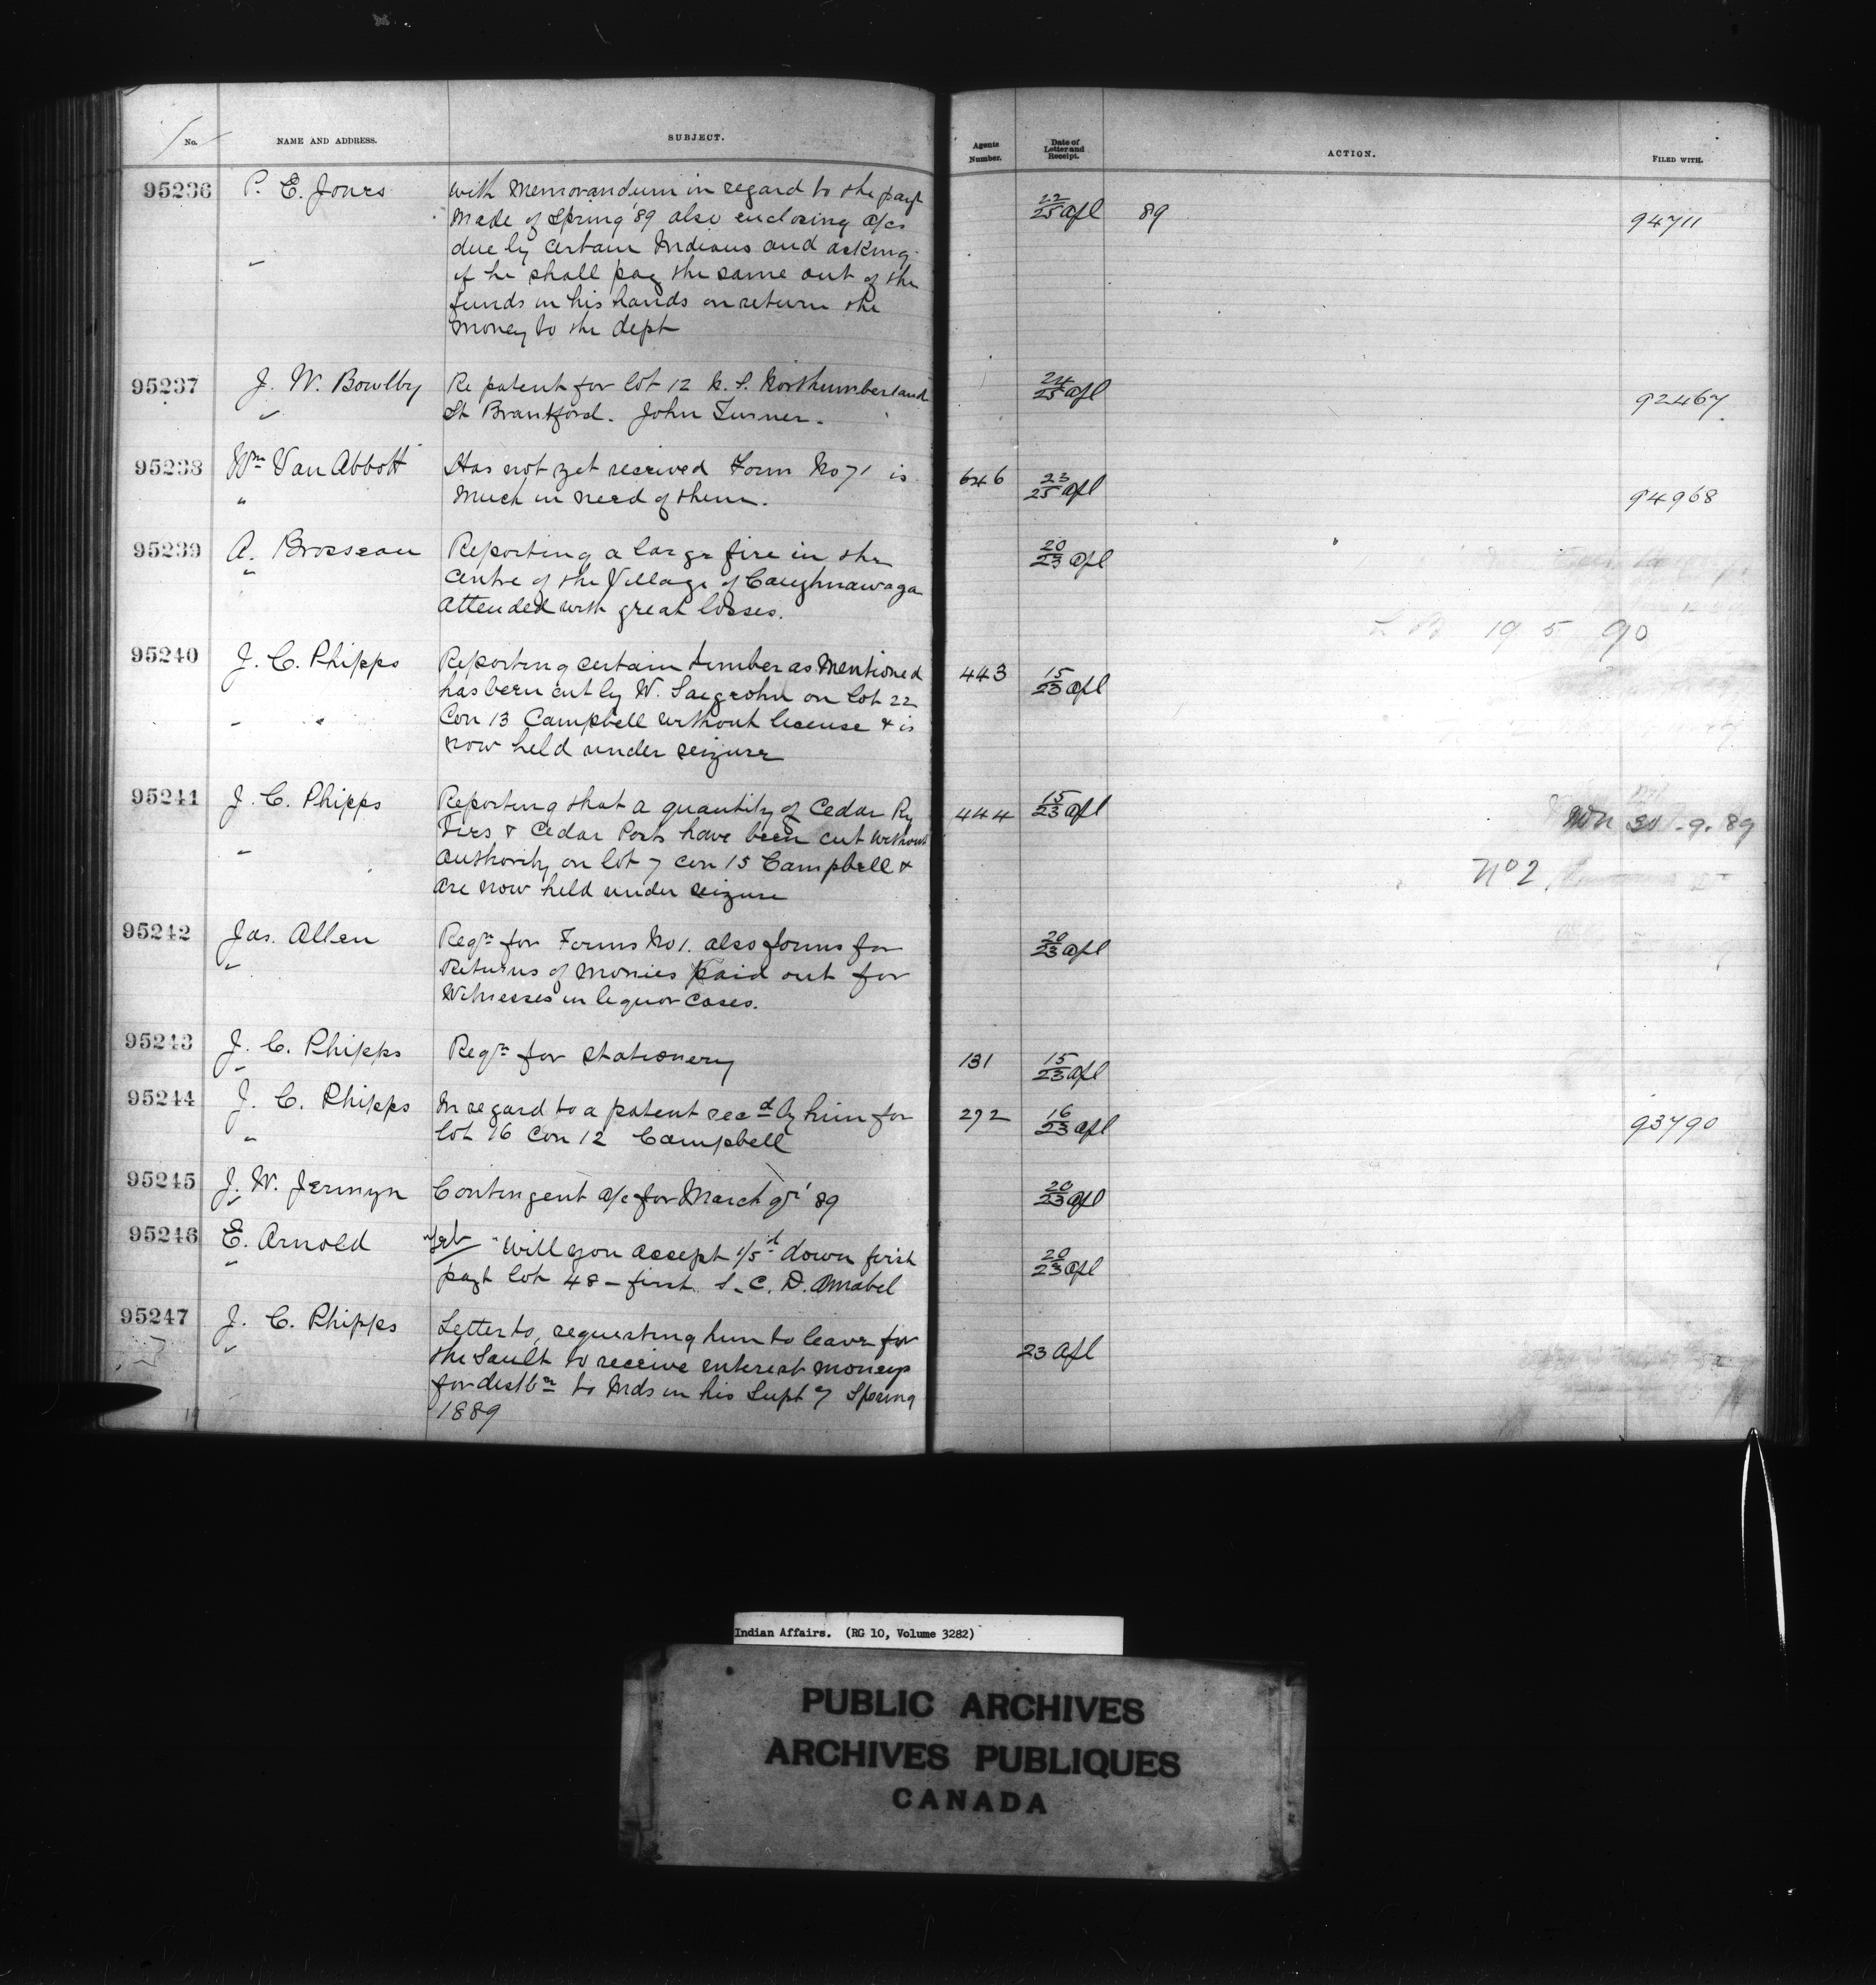 No. NAME AND ADDRESS. SUBJECT. Agents Number. Date of Letter and Receipt. ACTION. FILED WITH.
95236 P. E. Jones With Memorandum in regard to the payt 22/25 Apl 89 94711
Made of Spring '89 also enclosing a/cs
due by certain Indians and asking
" if he shall pay the same out of the
funds in his hands or return the
money to the dept
95237 J. W. Bowlby Re patent for lot 12 N. S. Northumberland 24/25 Apl 92467
" St Brantford. John Turner.
95238 Wm Van Abbott Has not yet received Form No 71 is 646 23/25 Apl 94968
" Much in need of them.
95239 A. Brosseau Reporting a large fire in the 20/23 Apl
" Centre of the Village of Caughnawaga
attended with great losses.
19 5 90
95240 J. C. Phipps Reporting certain timber as Mentioned 443 15/23 Apl
has been cut by W. on lot 22
" " Con 13 Campbell without license & is
now held under seizure
95241 J. C. Phipps Reporting that a quantity of Cedar Ry 444 15/23 Apl
Ties & Cedar Posts have been cut without 9. 89
" authority on lot 7 con 15 Campbell & No 2
are now held under seizure
95242 Jas. Allen Reqn for Forms No 1. also forms for 20/23 Apl
" Returns of monies paid out for
Witnesses in liquor cases.
95243 J. C. Phipps Reqn for stationery 131 15/23 Apl
"
95244 J. C. Phipps In regard to a patent recd by him for 292 16/23 Apl 93790
" lot 16 Con 12 Campbell
95245 J. W. Jermyn Contingent a/c for March qr '89 20/23 Apl
"
95246 E. Arnold "Will you accept 1/5d down first 20/23 Apl
" payt lot 48 – first S. C. D. Amabel
95247 J. C. Phipps Letter to, requesting him to leave for 23 Apl
" the Sault to receive interest moneys
for distbn to Inds in his Supt y Spring
1889
Indian Affairs. (RG 10, Volume 3282)
PUBLIC ARCHIVES
ARCHIVES PUBLIQUES
CANADA